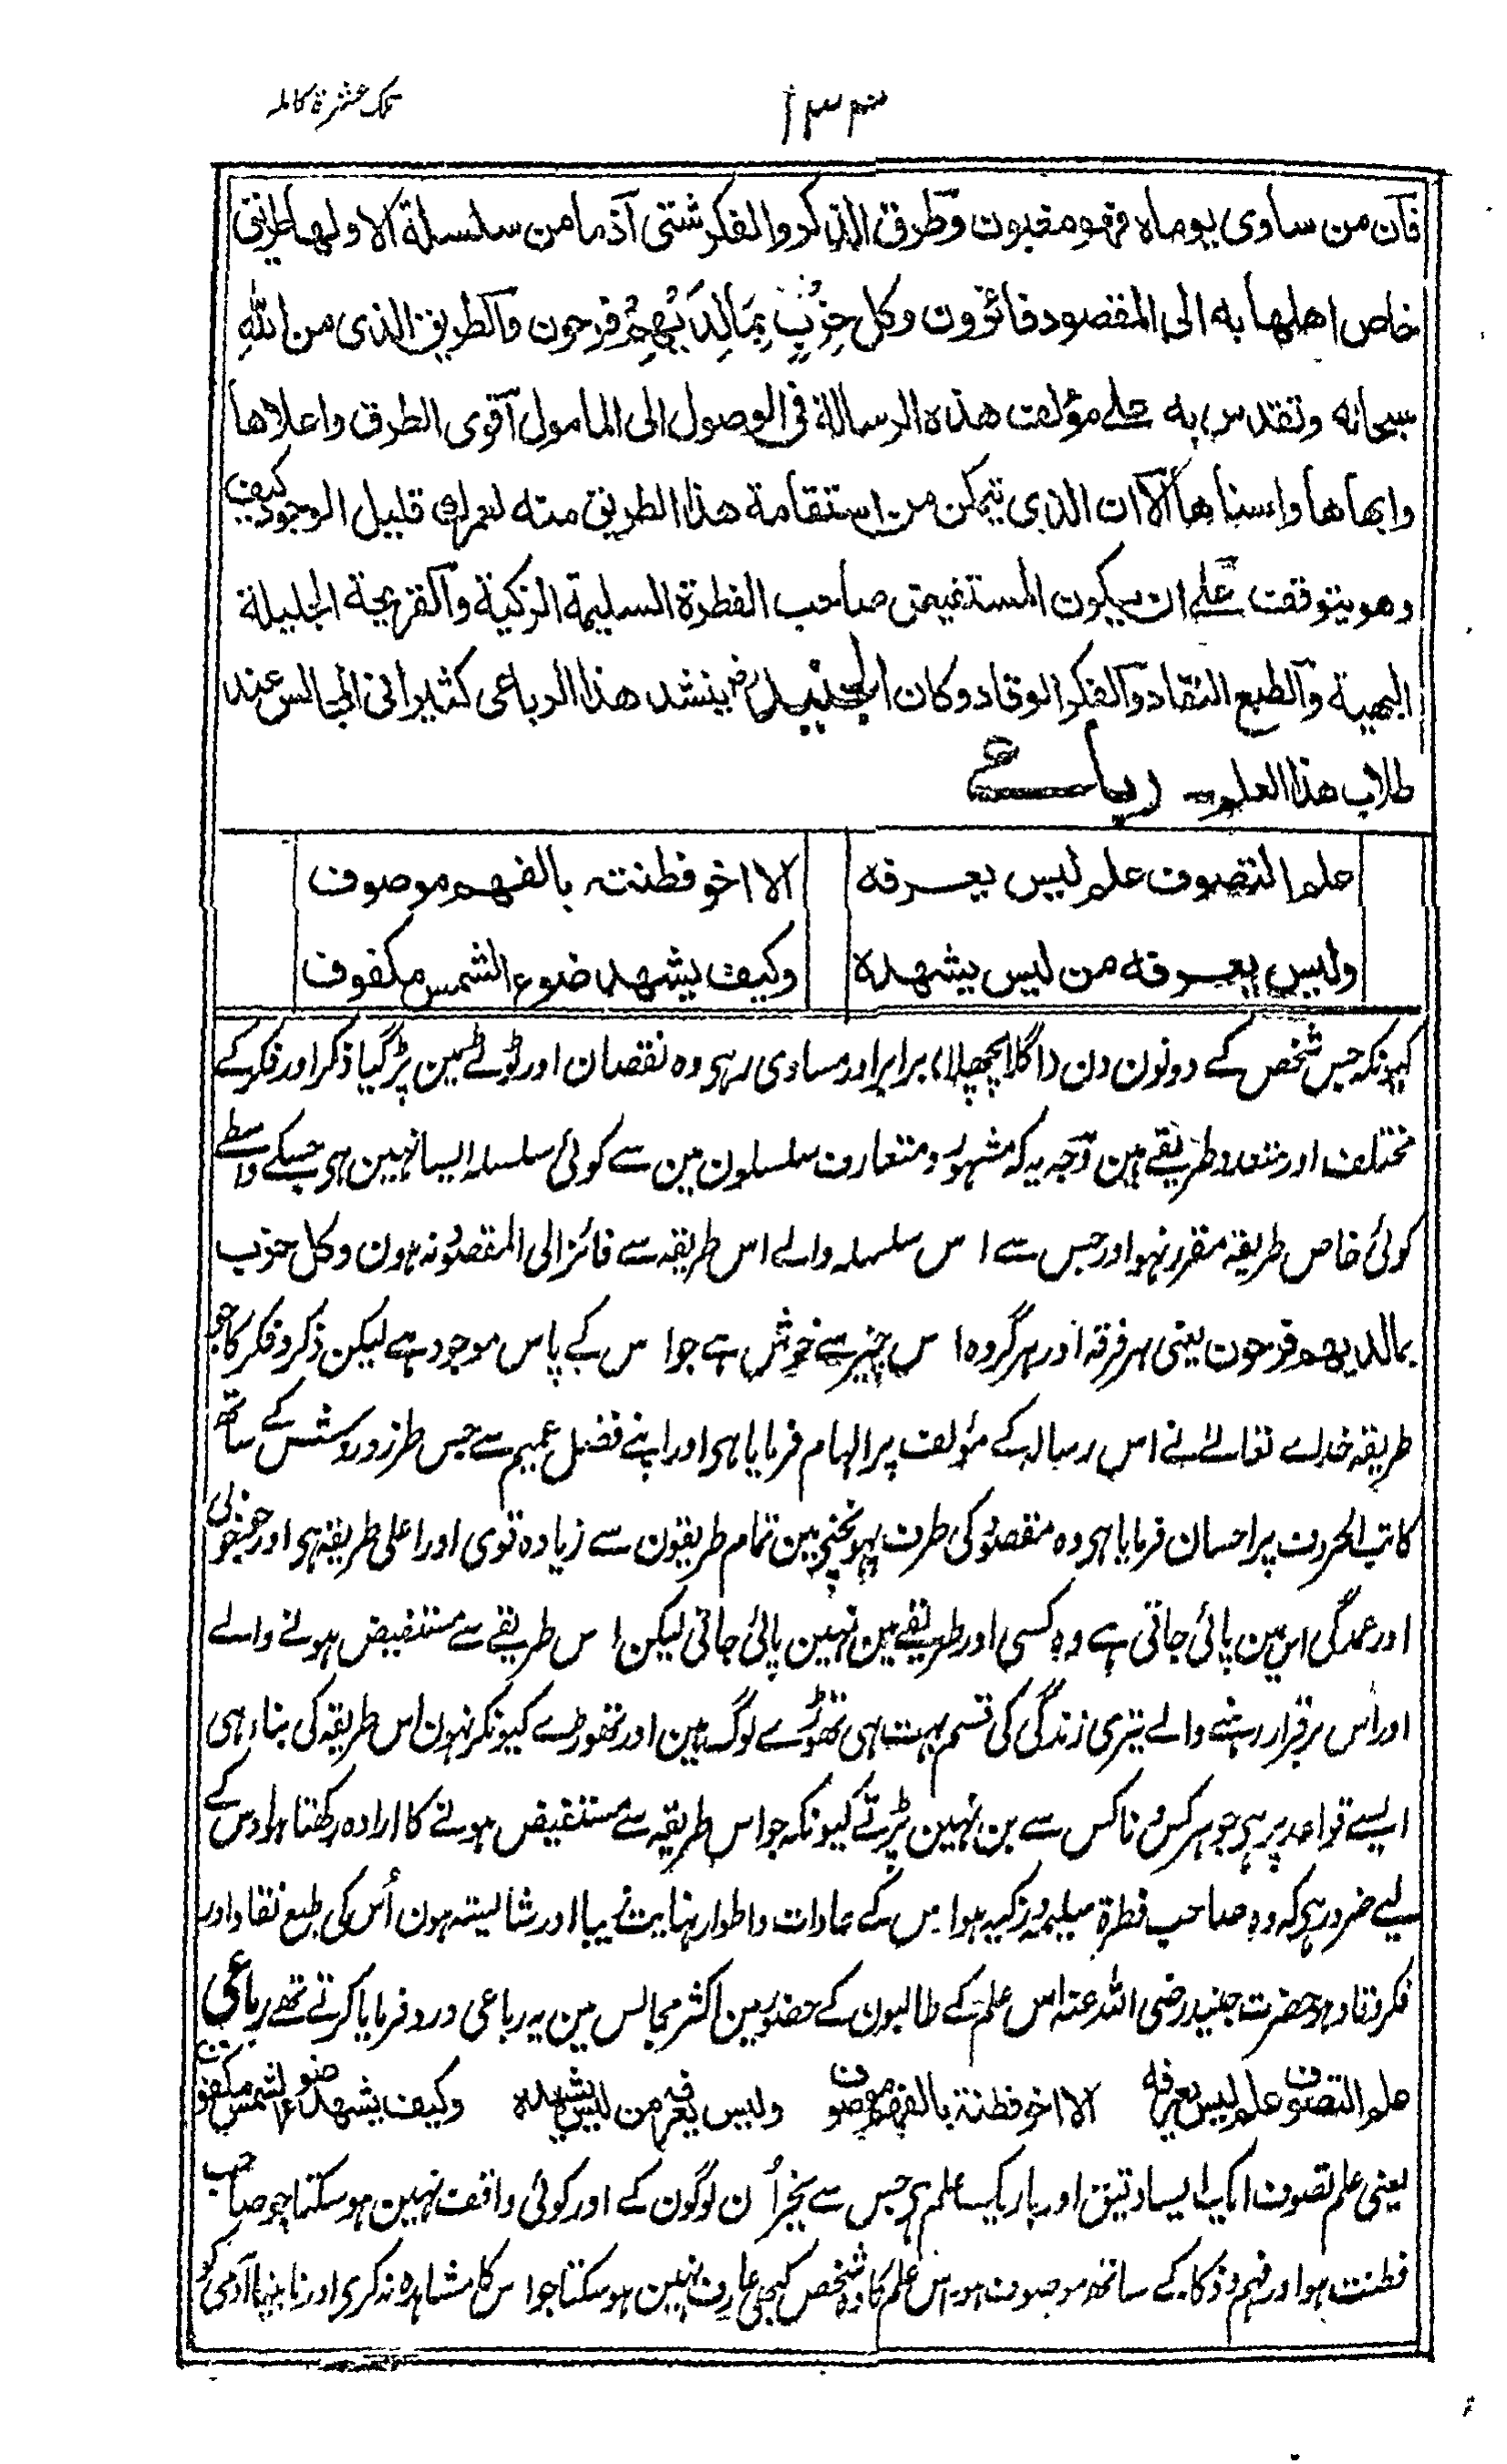 ۱۳۴
تلک عشرۃ کاملہ
فآن من ساوى يوماه فهو مغبون وطرق الذكر والفكر شتى آذ ما من سلسلة الا ولها طريق
خاص اهلها به الى المقصود فائزون وكل حِزْبٍ بِمَا لَدَيْهِمْ فرحون والطريق الذى من اللهِ
سبحانه وتقدس به على مؤلف هذه الرسالة فى الوصول الى المامول آقوى الطرق واعلاها
وابهاها واسناها آلآ ان الذى يتمكن من استقامة هذا الطريق منه لعمرك قليل الوجود كيف
وهو يتوقف على ان يكون المستفيض صاحب الفطرة السليمة الزكية والقريحة الجليلة
البهية والطبع النقاد والفكر الوقاد وكان الجنيد رض ينشد هذا الرباعى كثيرا فى المجالس عند
طلاب هذا العلم رباعی
علم التصوف علم ليس يعرفه الا اخو فطنته بالفهم موصوف
وليس يعرفه من ليس يشهده وكيف يشهد ضوء الشمس مكفوف
کیونکہ جس شخص کے دونون دن (اگلا پچھلا) برابر اور مساوی رہی وہ نقصان اور ٹوٹے مین پڑگیا ذکر اور فکر کے
مختلف اور متعدد طریقے ہین وجہ یہ کہ مشہور و متعارف سلسلون مین سے کوئی سلسلہ ایسا نہین ہی جسکے واسطے
کوئی خاص طریقہ مقرر نہو اور جس سے اس سلسلہ والے اس طریقہ سے فائز الی المقصود نہ ہون وکل حزب
بمالدیھم فرحون یعنی ہر فرقہ اور ہر گروہ اس چیز سے خوش ہے جو اس کے پاس موجود ہے لیکن ذکر و فکر کا جو
طریقہ خداے تعالے نے اس رسالہ کے مؤلف پر الہام فرمایا ہی اور اپنے فضل عمیم سے جس طرز و روش کے ساتھ
کاتب الحروف پر احسان فرمایا ہی وہ مقصود کی طرف پہونچنے مین تمام طریقون سے زیادہ قوی اور اعلی طریقہ ہی اور جو خوبی
اور عمدگی اس مین پائی جاتی ہے وہ کسی اور طریقے مین نہین پائی جاتی لیکن اس طریقے سے مستفیض ہونے والے
اور اُس پر برقرار رہنے والے تیری زندگی کی قسم بہت ہی تھوڑے لوگ ہین اور تھوڑے کیونکر نہون اس طریقہ کی بناء ہی
ایسے قواعد پر ہی جو ہر کس و ناکس سے بن نہین پڑتے کیونکہ جو اس طریقہ سے مستفیض ہونے کا ارادہ رکھتا ہو اوس کے
لیے ضرور ہی کہ وہ صاحب فطرۃ سلیمہ و زکیہ ہو اس کے عادات و اطوار نہایت زیبا اور شایستہ ہون اُس کی طبع نقاد اور
فکر وقاد ہو حضرت جنید رضی اللہ عنہ اس علم کے طالبون کے حضور مین اکثر مجالس مین یہ رباعی ورد فرمایا کرتے تھے رباعی
علم التصوف علم لیس یعرفه الا اخو فطنة بالفهم موصوف ولیس یعرفه من لیس یشهده وکیف یشهد ضوء الشمس مکفوف
یعنی علم تصوف ایک ایسا دقیق اور باریک علم ہی جس سے بجز اُن لوگون کے اور کوئی واقف نہین ہو سکتا جو صاحب
فطنت ہو اور فہم و ذکا کے ساتھ موصوف ہو اس علم کا وہ شخص کبھی عارف نہین ہو سکتا جو اس کا مشاہدہ نہ کری اور نابینا آدمی کو